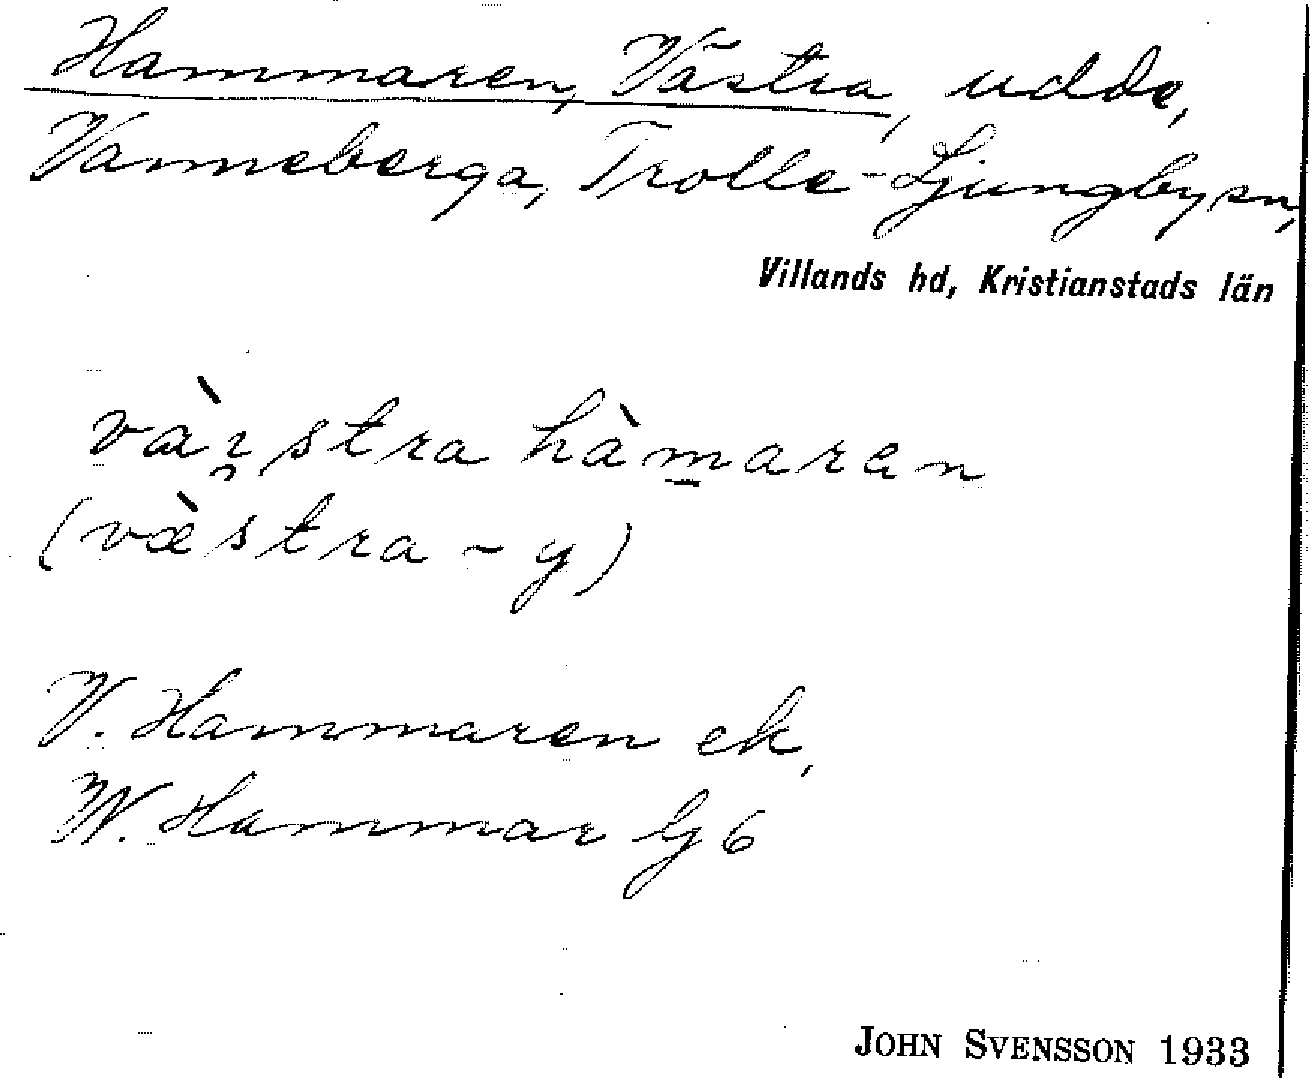 Hammaren, Västra, udde,
Vanneberga, Trolle-Ljungby sn,
Villands hd, Kristianstads län
vàı̯stra hàm̱aren
(væ̀stra - y)
V. Hammaren ek,
W. Hammar lj 6
JOHN SVENSSON 1933